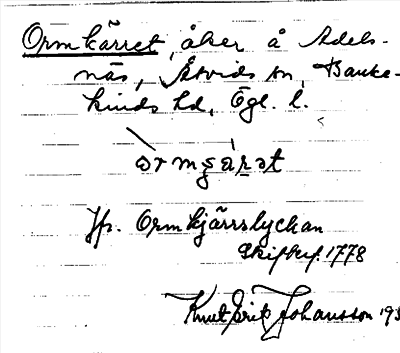 Ormkärret, åker å Adels-
näs, Åtvids sn, Banke-
kinds hd, Ögl. l.
Jfr. Ormkjärrslyckan
Skifbesk. 1778
Knut Erik Johansson 193